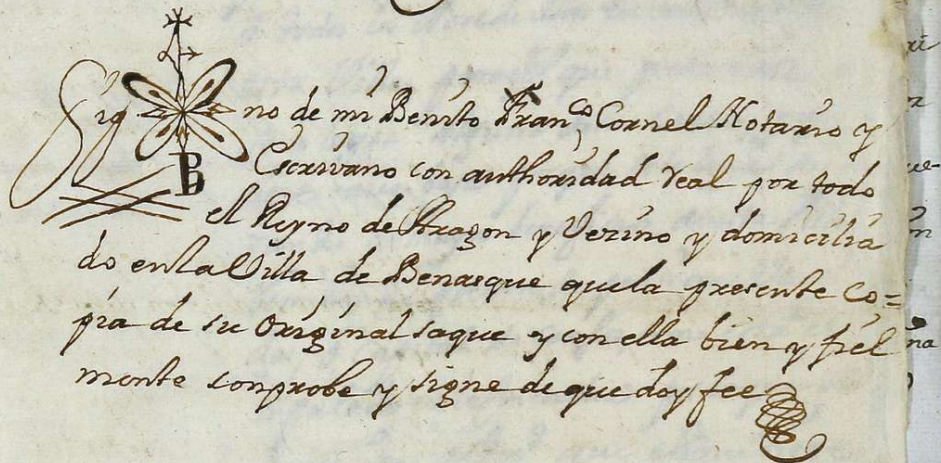 Sig no de mi Benito Fran.co Cornel Notario y
B Escrivano con authoridad real por todo
el Reyno de Aragon y Vezino y domicilia
do en la Villa de Benasque que la presente co=
pia de su Original saque y con ella bien y fiel
mente conprobe y signe de que doy fee